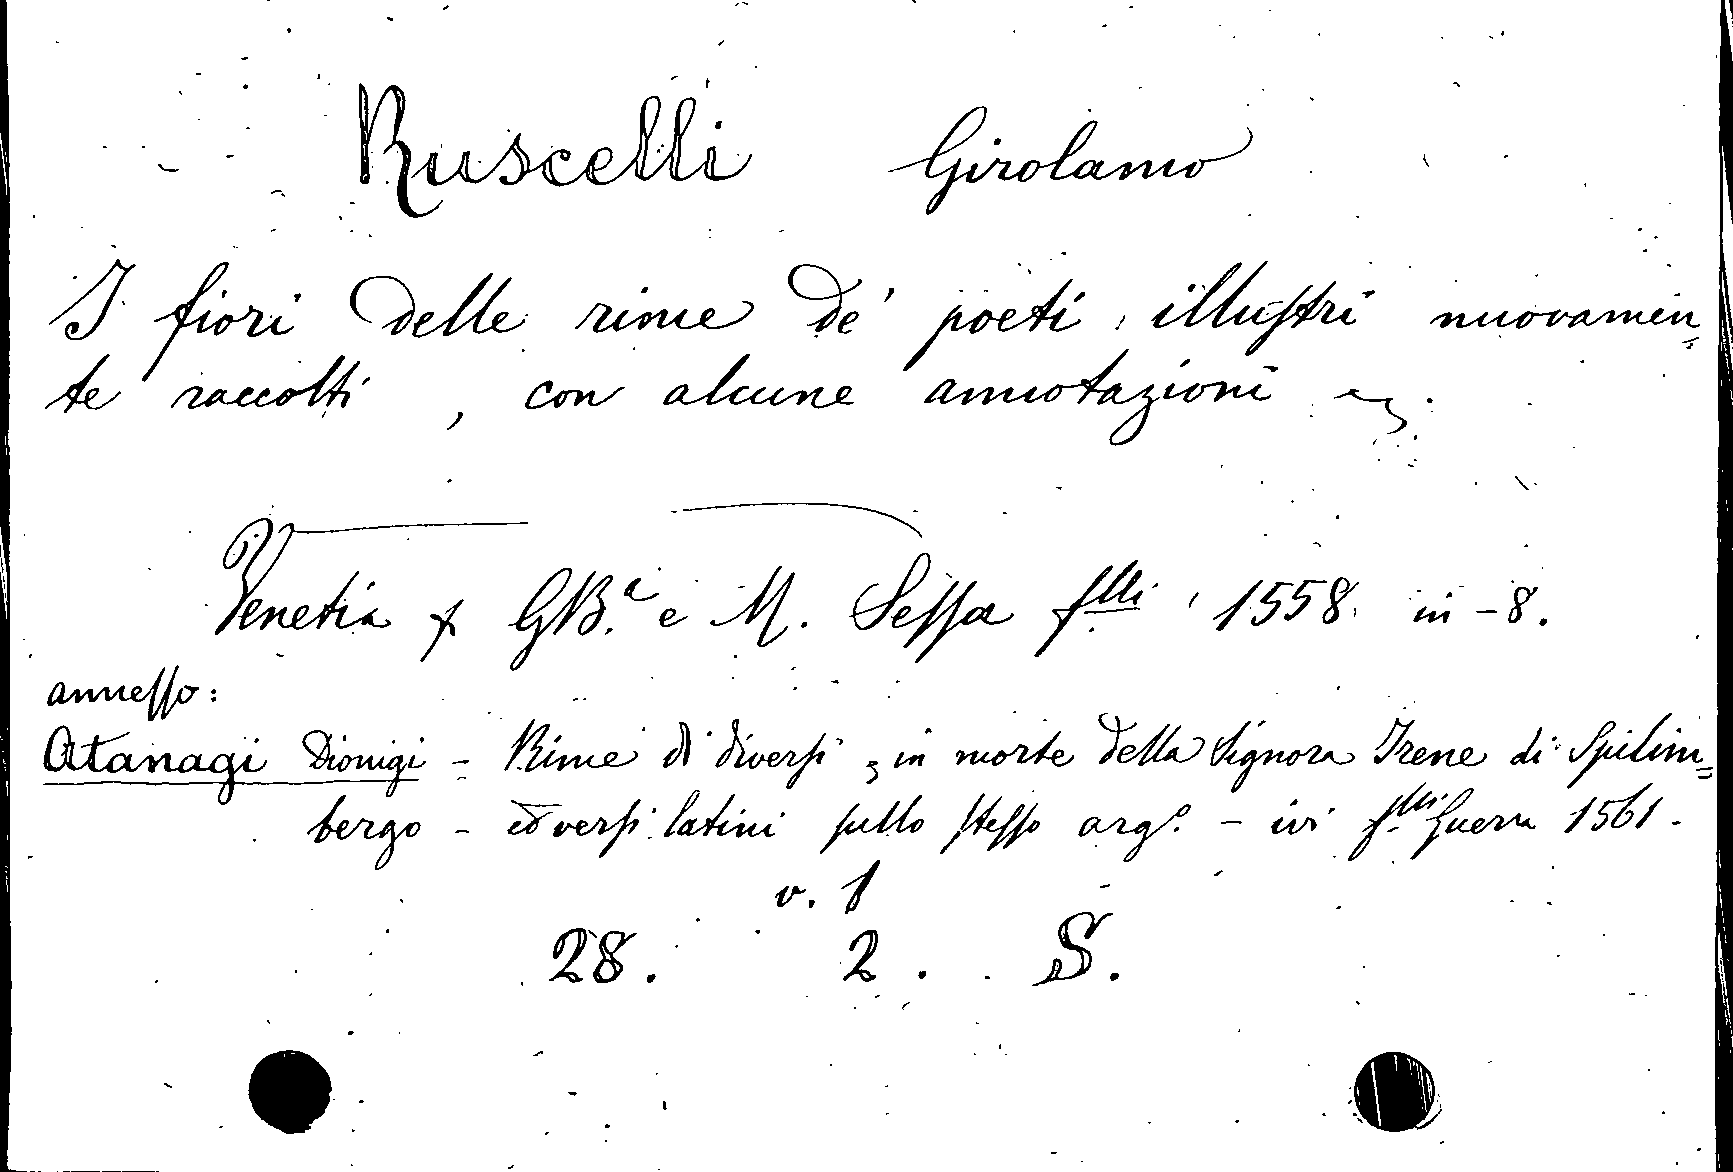 Ruscelli Girolamo
I fiori delle rime de' poeti illustri nuovamen=
te raccolti, con alcune annotazioni
Venetia GB.a e M. Sessa f.lli, 1558. in-8.
annesso:
Atanagi Dionigi - Rime di diversi, in morte della Signora Irene di Spilim=
bergo - ed versi latini sullo stesso arg.o - ivi f.lli Guerra 1561.
v. 1
28. 2. S.